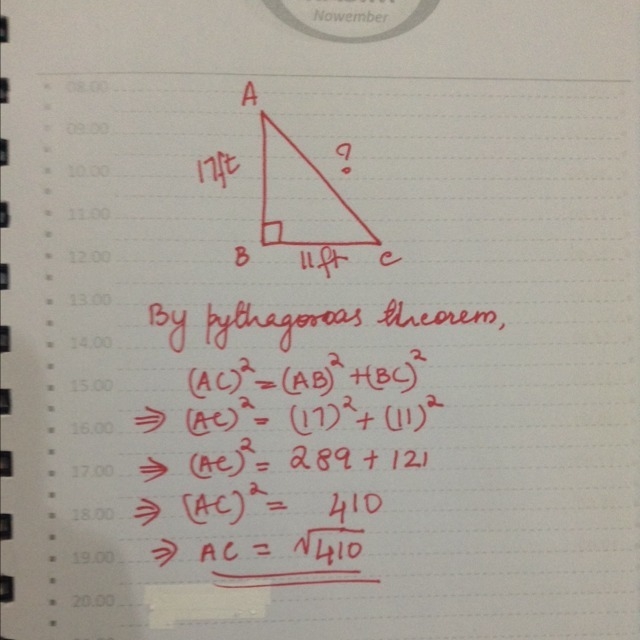 Nowember
08.00
A
09.00
17ft ?
10.00
11.00
B 11ft C
12.00
13.00
By pythagoroas theorem,
14.00
(AC)² = (AB)² + (BC)²
15.00
⇒ (AC)² = (17)² + (11)²
16.00
⇒ (AC)² = 289 + 121
17.00
⇒ (AC)² = 410
18.00
⇒ AC = √410
19.00
20.00